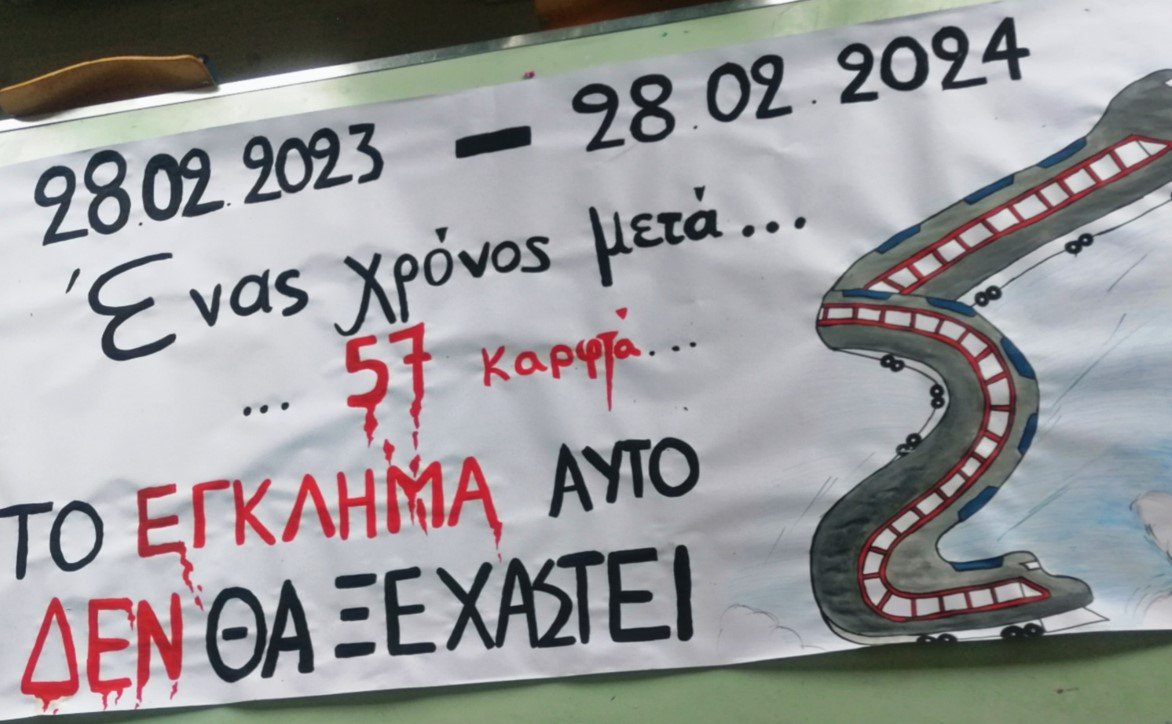 28.02.2023 - 28.02.2024
Ένας χρόνος μετά...
... 57 καρφιά...
ΤΟ ΕΓΚΛΗΜΑ ΑΥΤΟ
ΔΕΝ ΘΑ ΞΕΧΑΣΤΕΙ